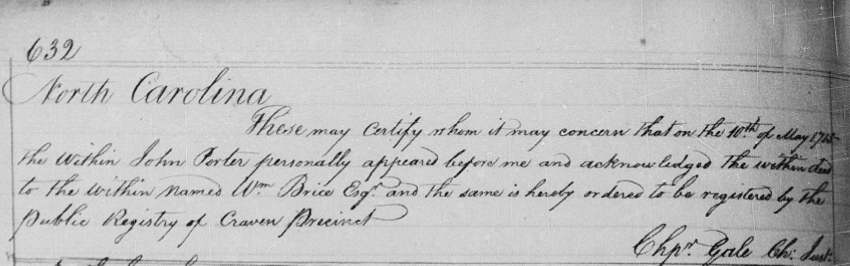 632
North Carolina
These may Certify whom it may concern that on the 10th of May 1715
the Within John Porter personally appeared before me and acknowledged the within deed
to the Within named Wm Brice Esqr and the same is hereby ordered to be registered by the
Public Registry of Craven Precinct
Chpr Gale Ch: Just: